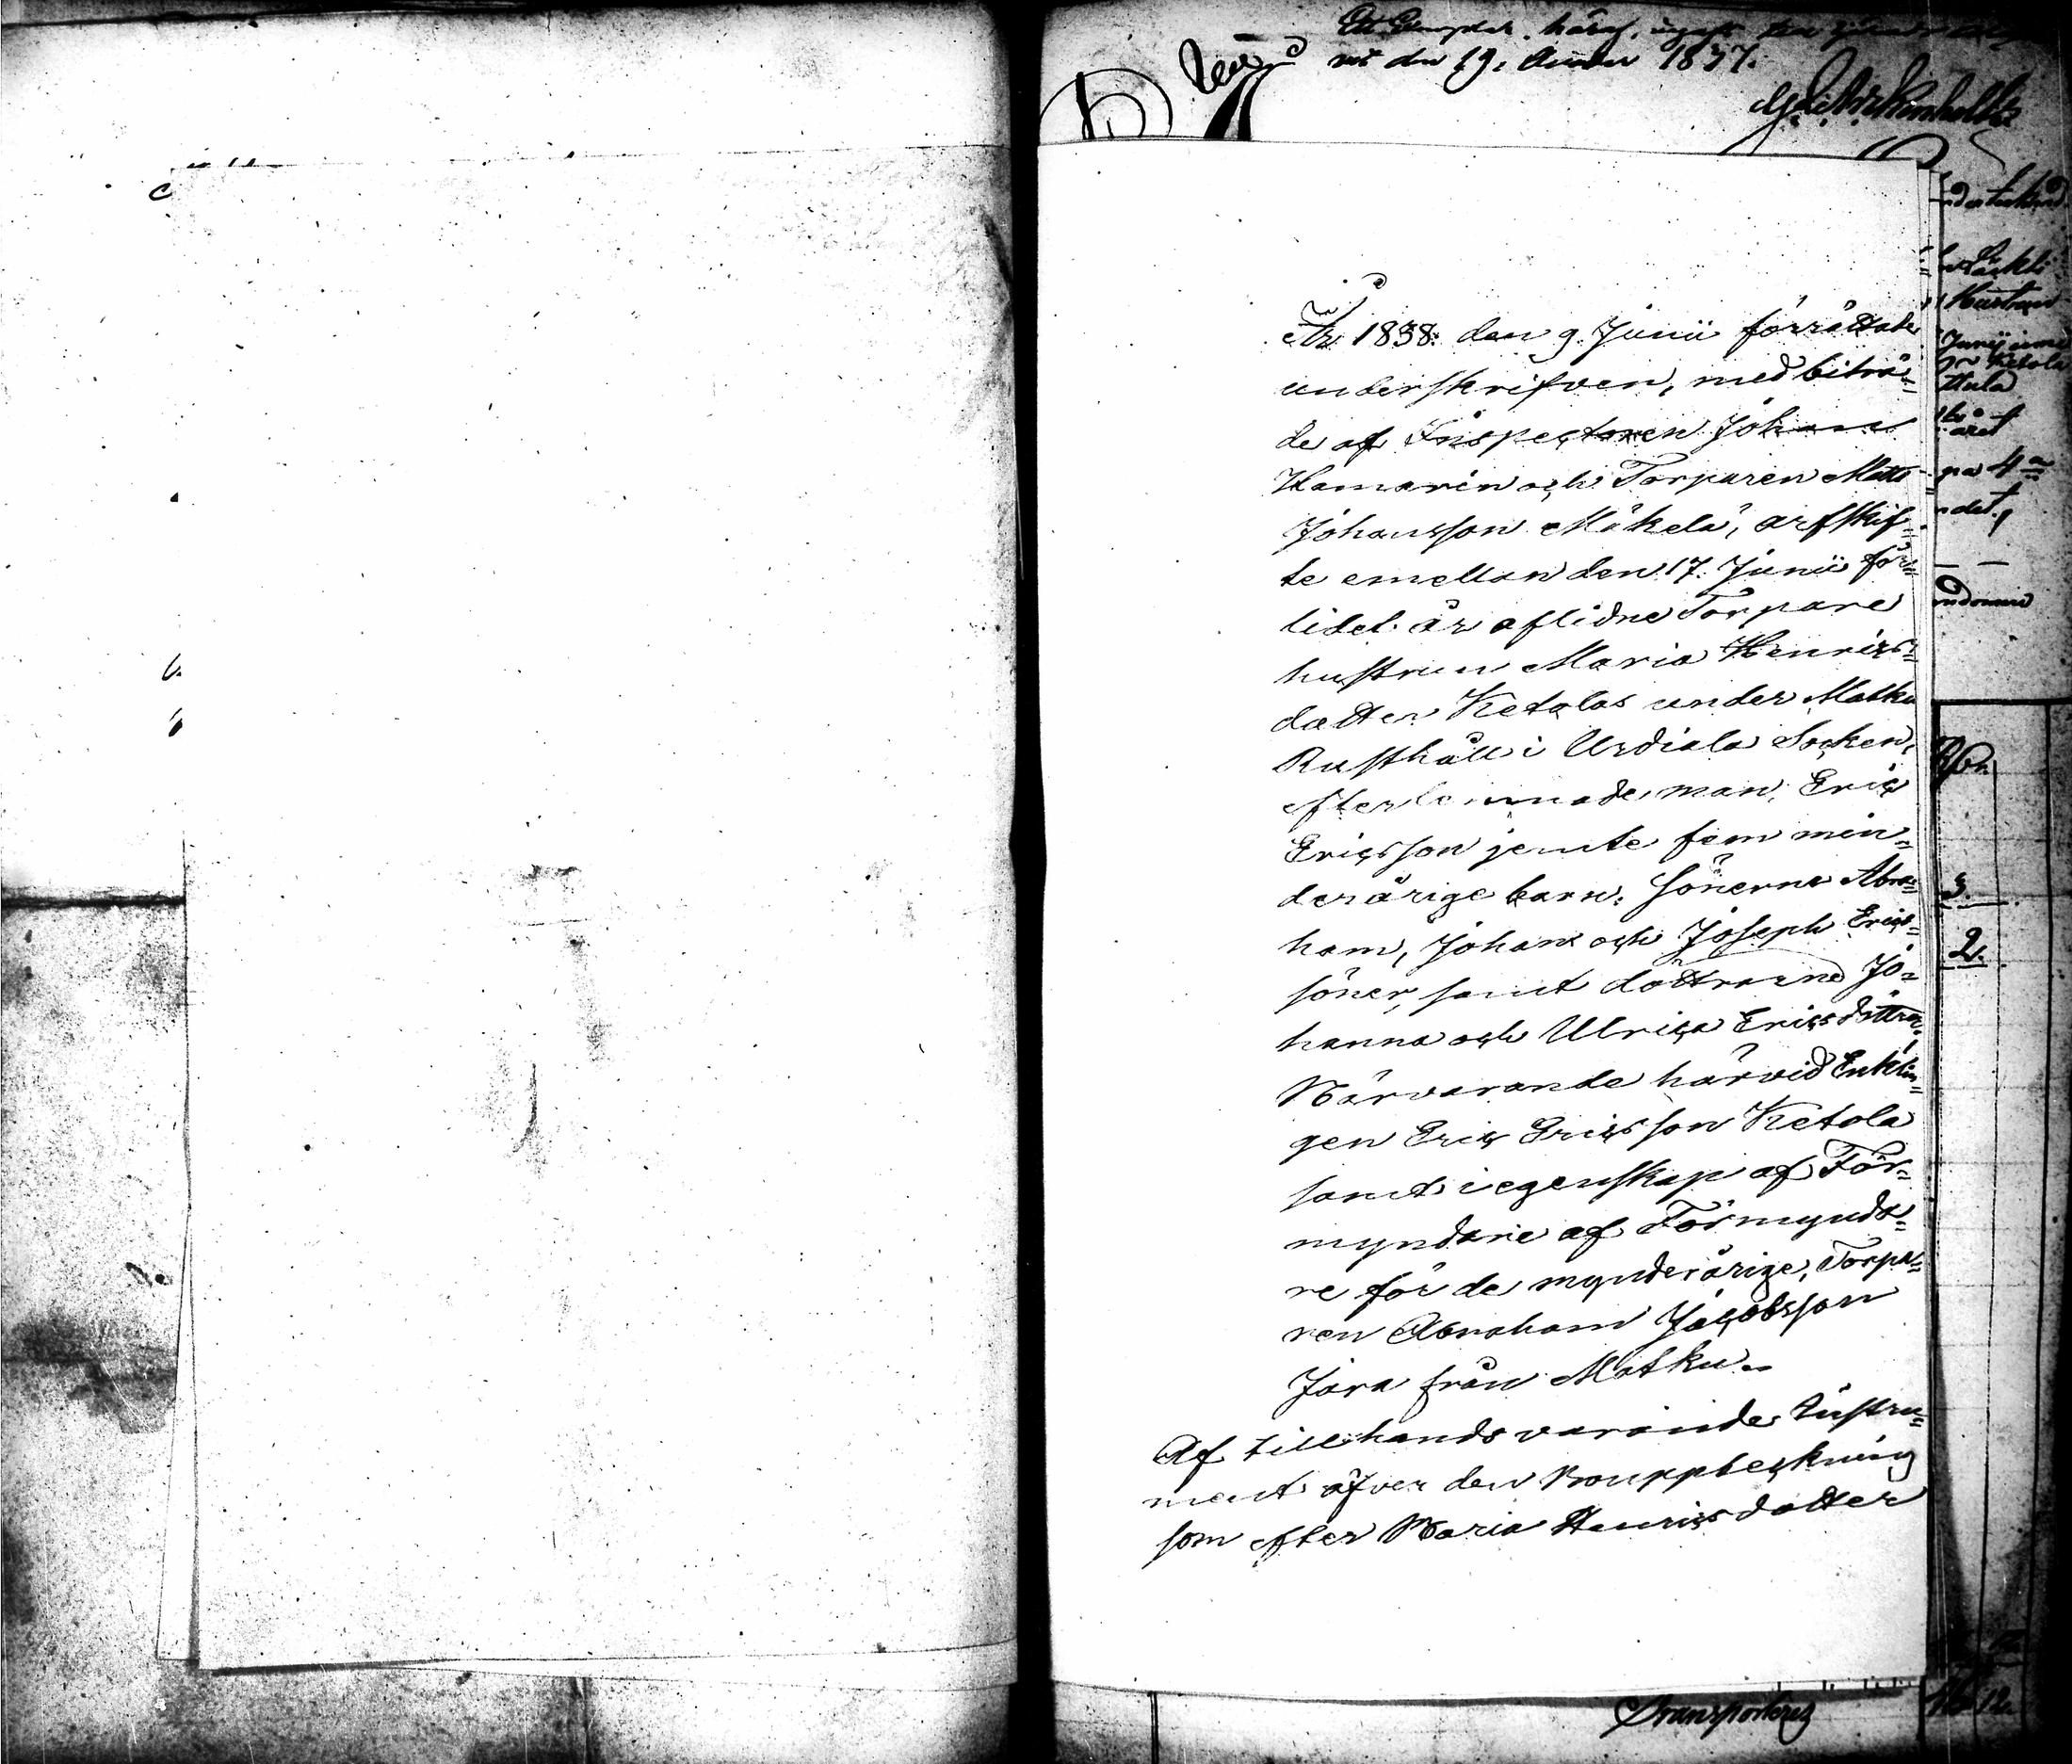 vis den 19. Augusti 1837.
År 1838 den 9 Junii förrättade
underskrifven, med biträ=
de af Inspectoren Johan
Hamarin och Torparen Matts
Johansson Mäkelä, arfskif=
te emellan den 17 Junii för=
lidet år aflidne Torpare
hustrun Maria Henrics=
dotter Ketolas under Matku
Rusthåll i Urdiala Socken,
efterlemnade man, Eric
Ericsson jemte fem min=
derårige barn: Sönerne Abra=
ham, Johan och Joseph Erics=
söner, samt döttrarne Jo=
hanna och Ulrica Ericsdöttrar.
Närvarande härvid Enklin=
gen Eric Ericsson Ketola
samt i egenskap af För=
myndare af Förmynda=
re för de mynderårige, Torpa=
ren Abraham Jacobsson
Jara från Matku.
Af tillhandsvarande Instru=
ment öfver den Bouppteckning
som efter Maria Henricsdotter
Hustrun
Junii
Ketola
året
på 4
ndet,
3.
2.
Transporteras
12.